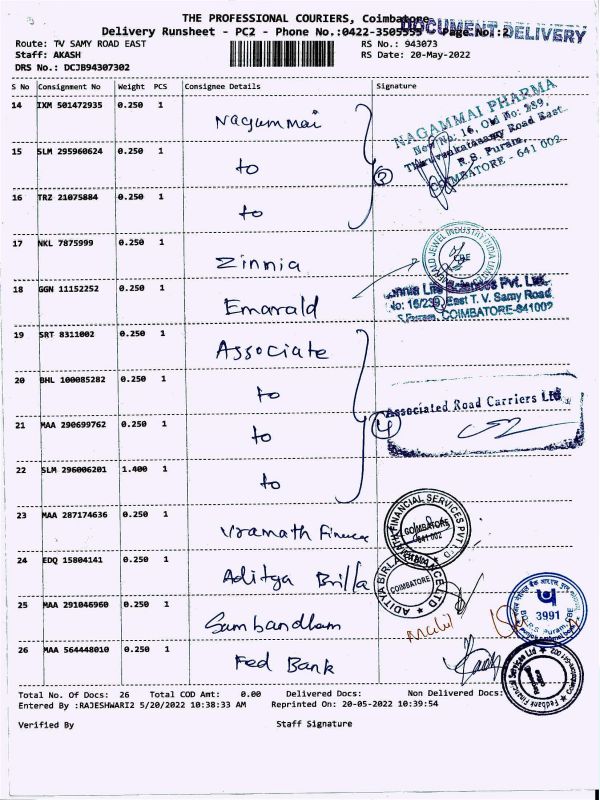 THE PROFESSIONAL COURIERS, Coimbatore
DOCUMENT DELIVERY
Delivery Runsheet - PC2 - Phone No.:0422-3505555 Page No.:2
Route: TV SAMY ROAD EAST
RS No.: 943073
Staff: AKASH
RS Date: 20-May-2022
DRS No.: DCJB94307302
S No Consignment No Weight PCS Consignee Details Signature
14 IXM 501472935 0.250 1 Nagummai
NAGAMMAI PHARMA
New No: 16, Old No: 289,
Thiruvenkatasamy Road East
R.S. Puram,
COIMBATORE - 641 002
15 SLM 295960624 0.250 1 to
3
16 TRZ 21075884 0.250 1 to
17 NKL 7875999 0.250 1 Zinnia
EMERALD JEWEL INDUSTRY INDIA LIMITED
CBE
18 GGN 11152252 0.250 1 Emarald
Zinnia Life Sciences Pvt. Ltd.
No: 16/239, East T. V. Samy Road
COIMBATORE-641002
19 SRT 8311002 0.250 1 Associate
20 BHL 100085282 0.250 1 to
Associated Road Carriers Ltd
21 MAA 290699762 0.250 1 to
4
22 SLM 296006201 1.400 1 to
23 MAA 287174636 0.250 1 Vramath Finance
FINANCIAL SERVICES PVT
COIMBATORE
641 002
24 EDQ 15804141 0.250 1 Aditya Brilla
ADITYA BIRLA FINANCE LTD
COIMBATORE
25 MAA 291046960 0.250 1 Sambandham
3991
R.S. Puram, CBE
26 MAA 564448010 0.250 1 Fed Bank
Fedbank Financial Services Ltd
Total No. Of Docs: 26 Total COD Amt: 0.00 Delivered Docs: Non Delivered Docs:
Entered By :RAJESHWARI2 5/20/2022 10:38:33 AM Reprinted On: 20-05-2022 10:39:54
Verified By Staff Signature